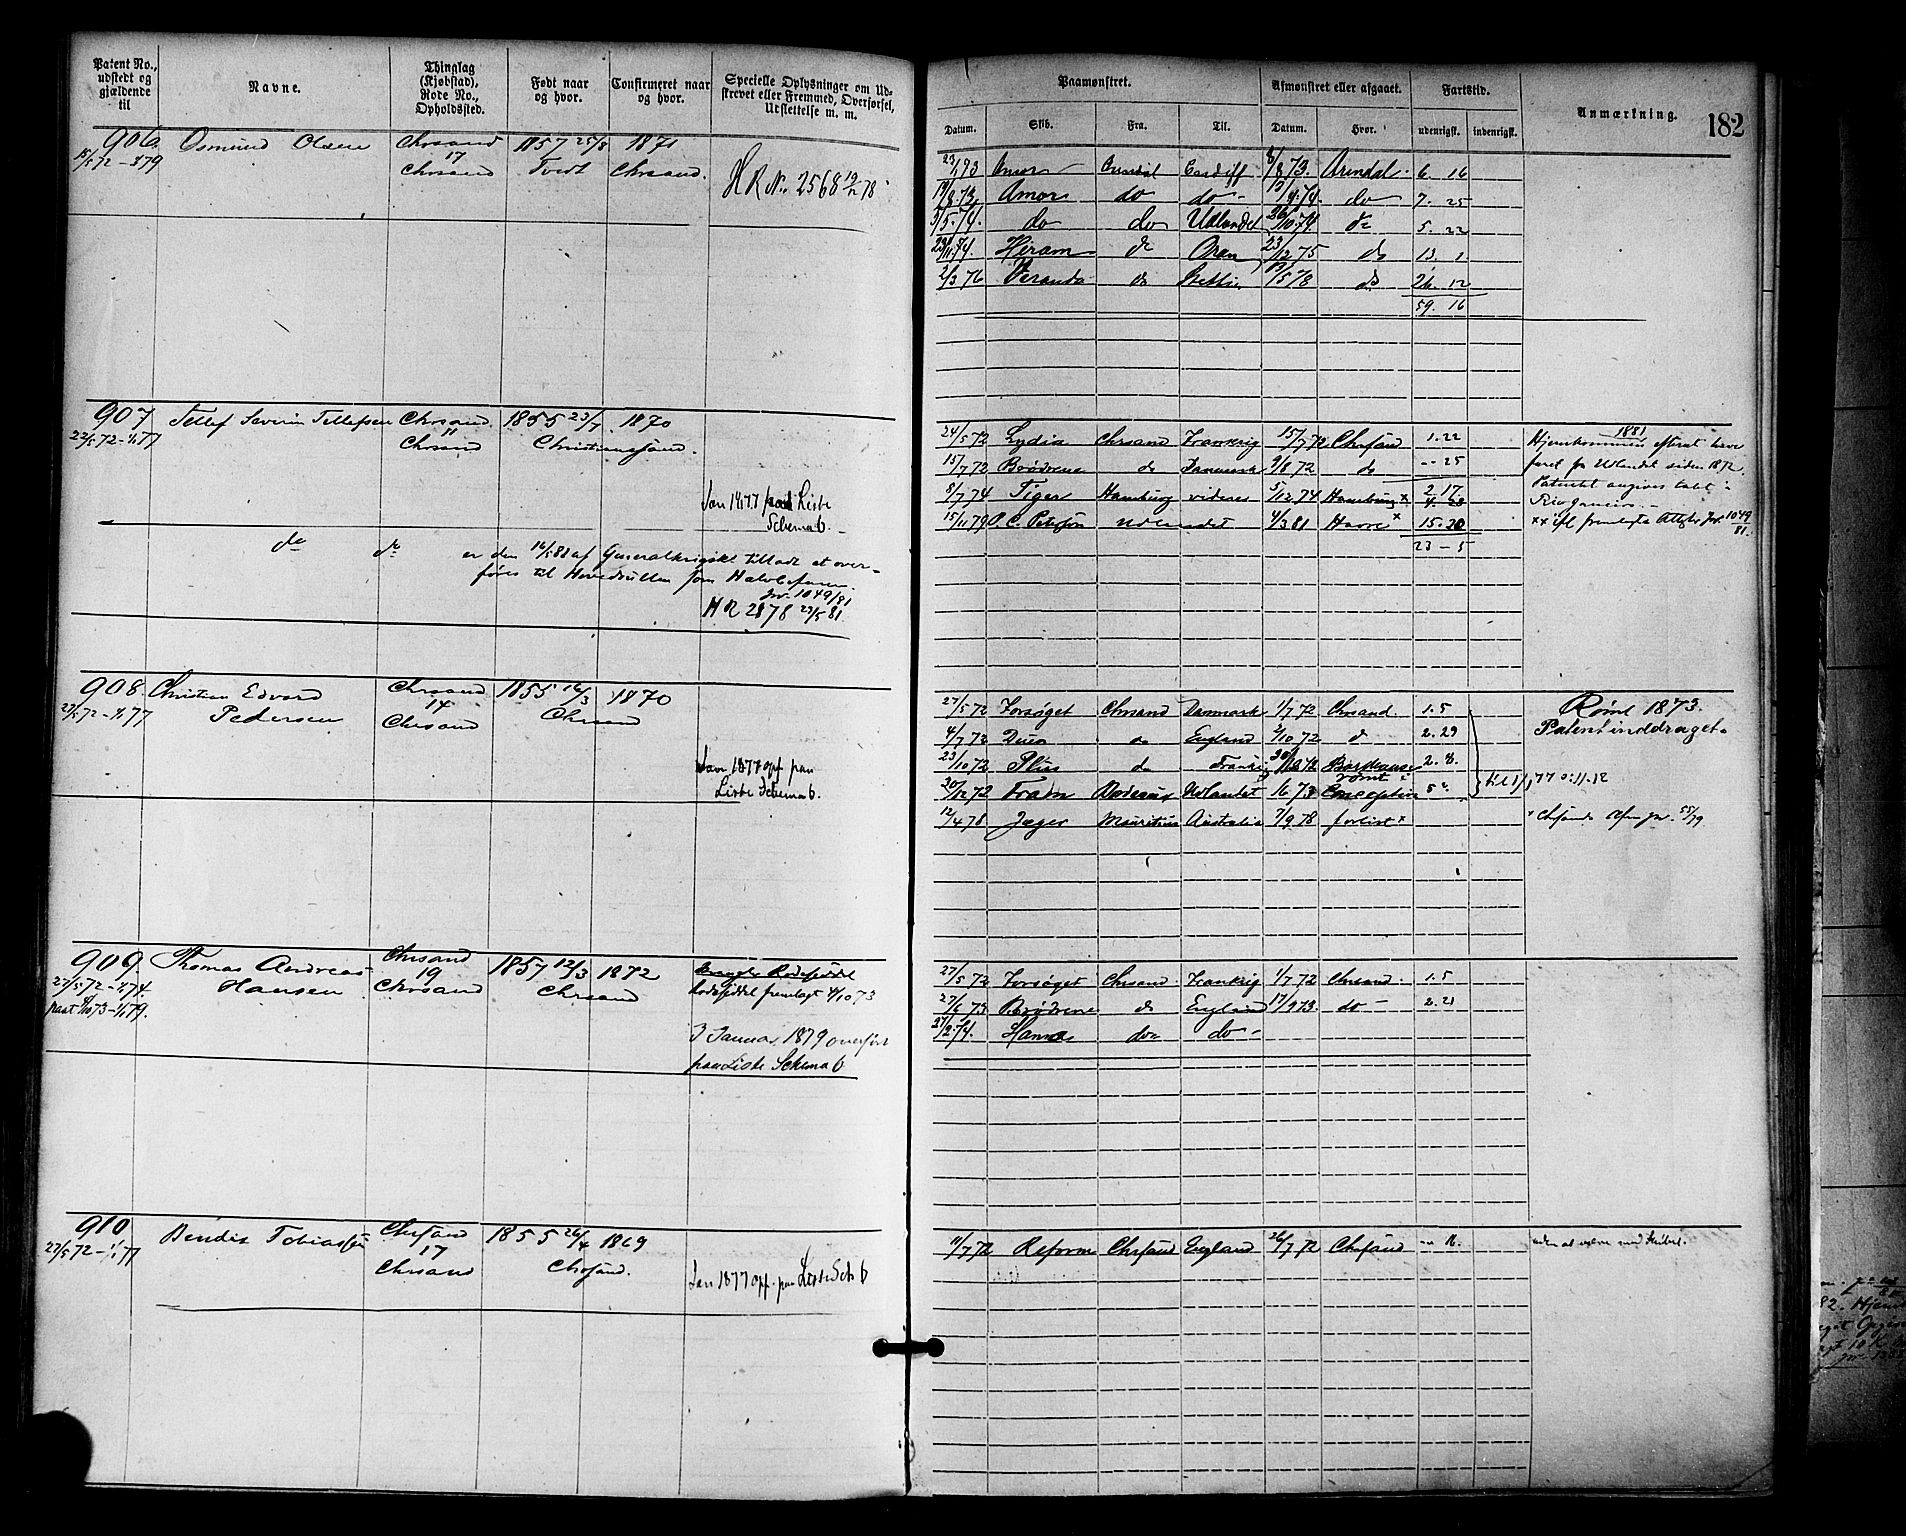 Patent No., udstedt og gjældende til
Navne.
Thinglag (Kjøbstad), Rode No., Opholdssted.
Født naar og hvor.
Confirmeret naar og hvor.
Specielle Oplysninger om Udskrevet eller Fremmed, Overførsel, Udslettelse m. m.
Paamønstret.
Afmønstret eller afgaaet.
Fartstid.
Anmærkning.
182
Datum. Skib. Fra. Til. Datum. Hvor. udenrigsk. indenrigsk.
906 Osmund Olsen Chrsand 1857 25/8 1871
15/5 72 - 1/1 79 17
Chrsand Tveit Chrsand.
H R No. 2568 19/12 78
23/1 73 Amor Arendal Cardiff 8/8 73. Arendal. 6. 16
Amor do do 7. 25
3/5 74. do do Udlandet 26/10 74 do 5. 22
23/11 74. Hiram do Oran 23/12 75 do 13. 1
2/3 76 Veranda do Stettin do 26. 12
59. 16
907 Tellef Severin Tellefsen Chrsand 1855 23/7 1870
22/5 72 - 1/1 77 11
Chrsand Christianssand.
Jan 1877 paa Liste
Schema 6.
do do er den 16/5 81 af Generalkrigskt tilladt at over-
føres til Hovedrullen som
Jr. 1049/81
H R 2878 23/5 81
24/5 72 Lydia Chrsand Frankrig 15/7 72 Chrsand 1. 22
15/7 72 Brødrene do Danmark 9/8 72 do -- 25
8/7 74 Tiger Hamburg videre 5/12 74 Hamburg x
15/11 79 P. C. Petersen udlandet 4/3 81 Havre x 15. 20
23 - 5
1881
Hjemkommen efterat have
faret fra Udlandet siden 1872.
Patentet angives tabt i
Rio Janeiro.
xx ifl fremlagte Jr. 1049/81.
908. Christian Edvard Chrsand 1855 16/3 1870
22/5 72 - 1/1 77 Pedersen 14
Chrsand Chrsand
Jan 1877 opf paa
Liste Schema 6.
27/5 72 Forsøget Chrsand Danmark 1/7 72 Chrsand. 1. 5
4/7 72 Duen do England /10 72 d 2. 29
23/10 72 Plus do Frankrig Bordeaux 2. 8.
20/12 72 Fram Bordeaux Udlandet 16 73 rømt Conception 5
12/4 78 Jæger Mauritius Australia 7/9 78 forlist x
til 1/1 77 0:11.12
Rømt 1873.
Patent inddraget.
x Chrsands Jr. 55/79
909. Thomas Andreas Chrsand 1857 12/3 1872
27/5 72 - 1/1 74. Hansen 19
Chrsand Chrsand
Rodeseddel
Rodeseddel fremlagt 4/10 73
3 Januar 1879 overført
paa Liste Schema 6
27/5 72 Forsøget Chrsand Frankrig 1/7 72 Chrsand. 1. 5
27/6 73 Brødrene do England 17/9 73. do 2. 21
27/2 74. Hanna do do
910 Bendix Tobiassen Chrsand 1855 26/4 1869
27/5 72 - 1/1 77 17
Chrsand Chrsand.
Jan 1877 opf. paa Liste Sch 6
11/7 72 Reform Chrsand England 26/7 72 Chrsand -- 16.